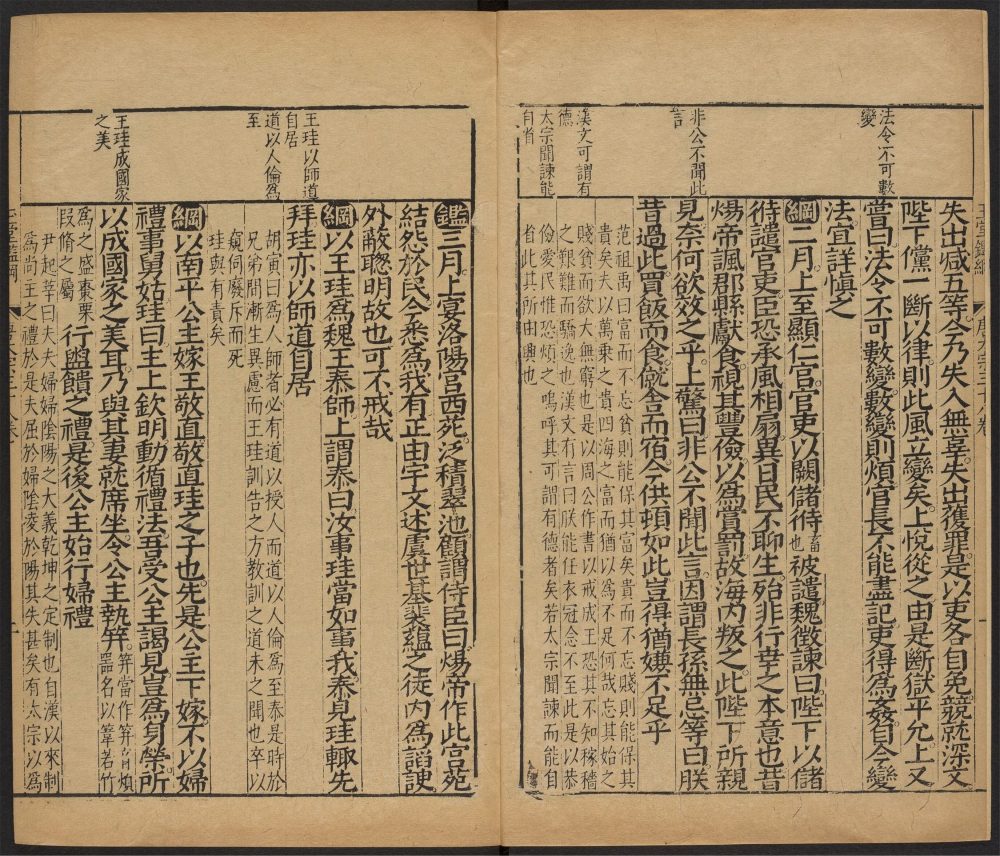 法令不可數
變
非公不聞此
言
漢文可謂有
德
太宗聞諫能
自省
失出減五等今乃失入無辜失出獲罪是以吏各自免競就深文
陛下儻一斷以律則此風立變矣上悅從之由是斷獄平允上又
嘗曰法令不可數變數變則煩官長不能盡記吏得為姦自今變
法宜詳慎之
綱二月上至顯仁宮官吏以闕儲偫也畜被譴魏徵諫曰陛下以儲
偫譴官吏臣恐承風相扇異日民不聊生殆非行幸之本意也昔
煬帝諷郡縣獻食視其豐儉以為賞罰故海內叛之此陛下所親
見奈何欲效之乎上驚曰非公不聞此言因謂長孫無忌等曰朕
昔過此買飯而食僦舍而宿今供頓如此豈得猶嫌不足乎
范祖禹曰富而不忘貧則能保其富矣貴而不忘賤則能保其
貴矣夫以萬乘之貴四海之富而猶以為不足何哉忘其始之
賤貧而欲大無窮也是以周公作書以戒成王恐其不知稼穡
之艱難而驕逸也漢文有言曰朕能任衣冠念不至此是以恭
儉愛民惟恐煩之嗚呼其可謂有德者矣若太宗聞諫而能自
省此其所由興也
王珪以師道
自居
道以人倫為
至
王珪成國家
之美
鑑三月上宴洛陽宮西苑泛積翠池顧謂侍臣曰煬帝作此宮苑
結怨於民今悉為我有正由宇文述虞世基裴蘊之徒內為諂諛
外蔽聰明故也可不戒哉
綱以王珪為魏王泰師上謂泰曰汝事珪當如事我泰見珪輒先
拜珪亦以師道自居
胡寅曰為人師者必有道以授人而道以人倫為至泰是時於
兄弟間漸生異慮而王珪訓告之方教訓之道未之聞也卒以
窺伺廢斥而死
珪與有責矣
綱以南平公主嫁王敬直敬直珪之子也先是公主下嫁不以婦
禮事舅姑珪曰主上欽明動循禮法吾受公主謁見豈為身榮所
以成國家之美耳乃與其妻就席坐令公主執笲笲當作笲音煩器名以葦若竹
為之盛棗栗
腶脩之屬行盥饋之禮是後公主始行婦禮
尹起莘曰夫夫婦婦陰陽之大義乾坤之定制也自漢以來制
為尚主之禮於是夫屈於婦陰凌於陽其失甚矣有太宗以為